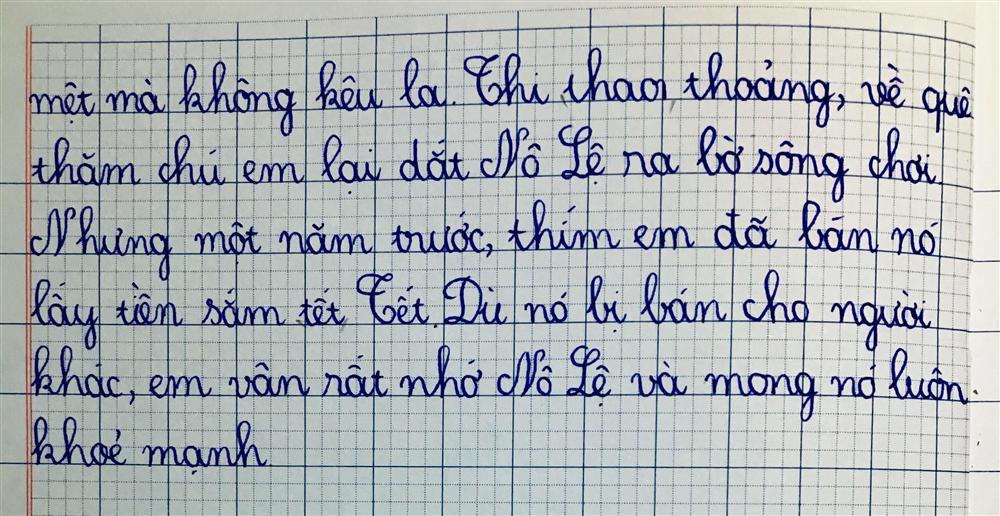 mệt mà không kêu la. Thi thaoi thoảng, về quê
thăm chú em lại dắt Nô Lệ ra bờ sông chơi.
Nhưng một năm trước, thím em đã bán nó
lấy tiền sắm tết Tết. Dù nó bị bán cho người
khác, em vẫn rất nhớ Nô Lệ và mong nó luôn
khoẻ mạnh